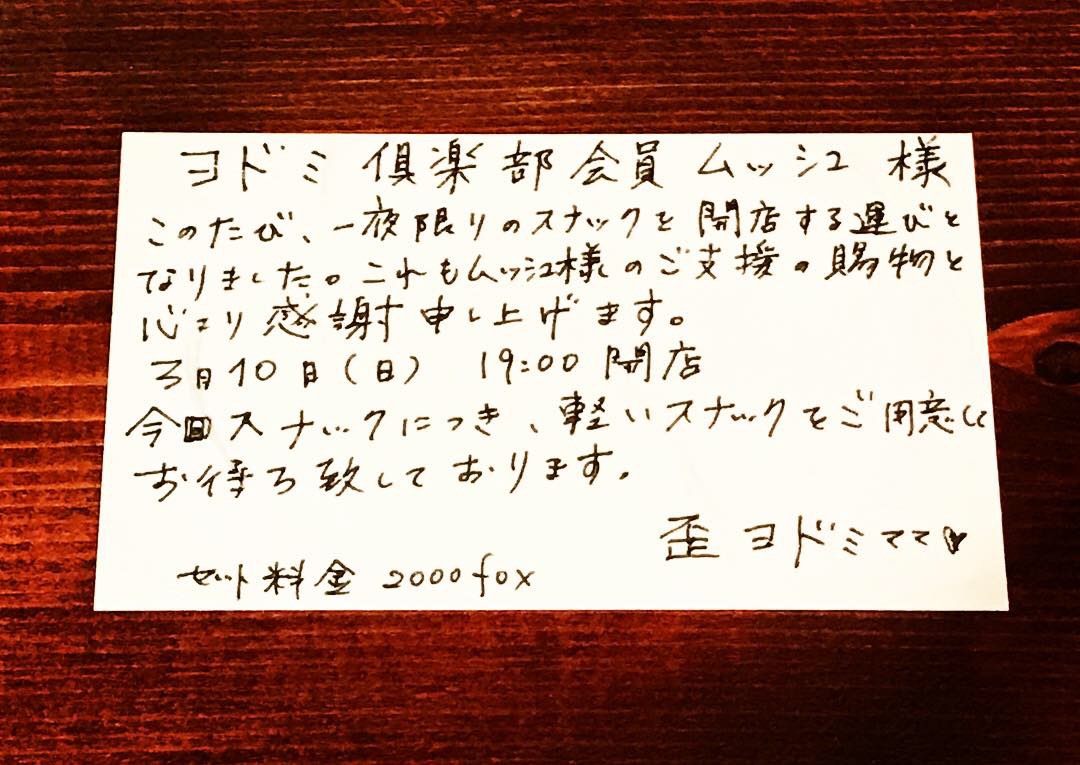 ヨドミ倶楽部会員 ムッシュ 様
このたび、一夜限りのスナックを開店する運びと
なりました。これもムッシュ様のご支援の賜物と
心より感謝申し上げます。
3月10日(日) 19:00 開店
今回スナックにつき、軽いスナックをご用意して
お待ち致しております。
歪ヨドミママ♥
セット料金 2000fox